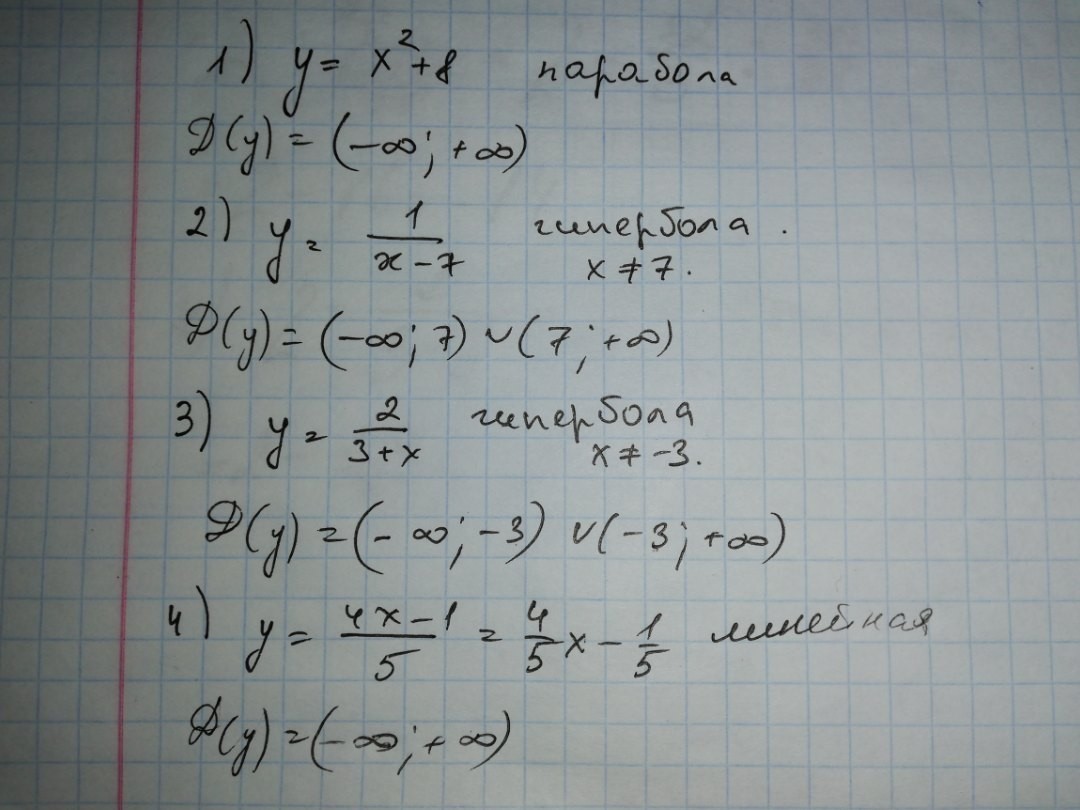 1) y = x²+8 парабола
Д(y) = (-∞; +∞)
2) y = 1/(x-7) гипербола.
x ≠ 7.
Д(y) = (-∞; 7) ∪ (7; +∞)
3) y = 2/(3+x) гипербола
x ≠ -3.
Д(y) = (-∞; -3) ∪ (-3; +∞)
4) y = (4x-1)/5 = 4/5 x - 1/5 линейная
Д(y) = (-∞; +∞)